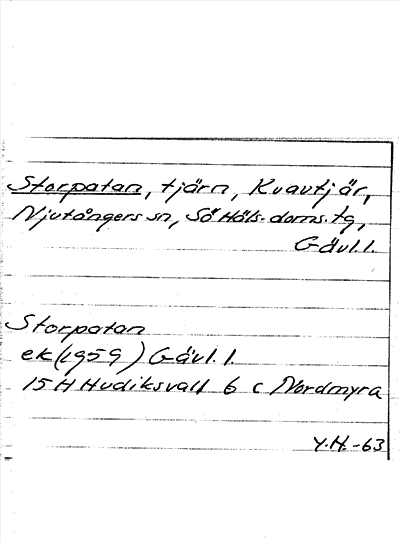 Storpatan, tjärn, Kvavtjär,
Njutångers sn, Sö Häls. doms. tg,
Gävl. l.
Storpatan
ek (1959) Gävl. l.
15 H Hudiksvall 6 c Nordmyra
Y.H.-63